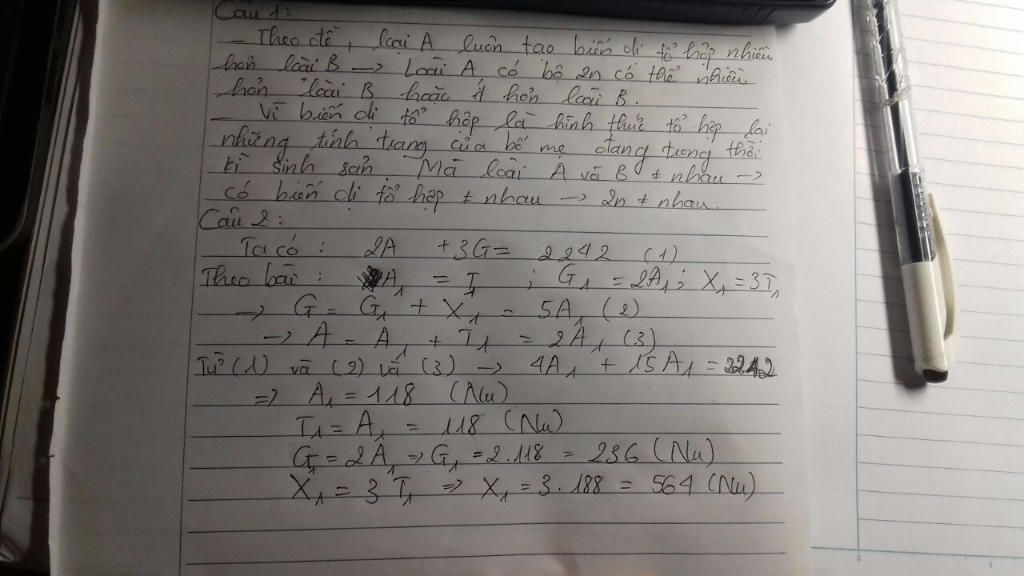 Câu 1:
- Theo đề, loài A luôn tạo biến dị tổ hợp nhiều
hơn loài B → Loài A có bộ 2n có thể nhiều
hơn loài B hoặc ít hơn loài B.
- Vì biến dị tổ hợp là hình thức tổ hợp lại
những tính trạng của bố mẹ đang trong thời
kì sinh sản. Mà loài A và B ≠ nhau →
có biến dị tổ hợp ≠ nhau → 2n ≠ nhau.
Câu 2:
Ta có: 2A + 3G = 2242 (1)
Theo bài: A₁ = T₁ ; G₁ = 2A₁ ; X₁ = 3T₁
→ G = G₁ + X₁ = 5A₁ (2)
→ A = A₁ + T₁ = 2A₁ (3)
Từ (1) và (2) và (3) → 4A₁ + 15A₁ = 2242
=> A₁ = 118 (Nu)
T₁ = A₁ = 118 (Nu)
G₁ = 2A₁ => G₁ = 2.118 = 236 (Nu)
X₁ = 3T₁ => X₁ = 3.188 = 564 (Nu)